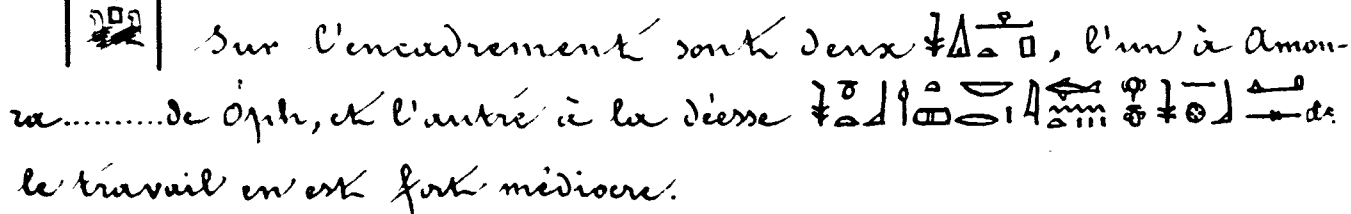 Sur l'encadrement sont deux , l'un à Amon-
ra..........de Ôph, et l'autre à la déesse
le travail en est fort médiocre.